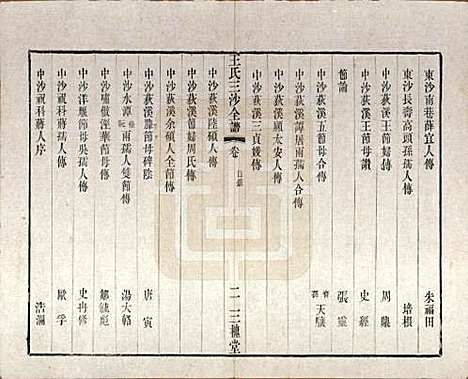 東沙南巷薛宜人傳　朱福田
東沙長壽高頭孫孺人傳　培根
中沙荻溪王節婦傳　周儀
中沙荻溪王節母讚　史經
節論　張靈
中沙荻溪五節母合傳　天驥
中沙荻溪譚居兩孺人合傳
中沙荻溪顧太安人傳
中沙荻溪三貞媛傳
王氏三沙全譜　卷　目錄　二　三槐堂
中沙荻溪陸碩人傳
中沙荻溪節婦周氏傳
中沙荻溪余碩人全節傳
中沙荻溪節母碑陰　唐寅
中沙水潭兩孺人雙節傳　湯大輅
中沙嘯傲涇華節母傳　鄒毓彪
中沙洋墅節母吳孺人傳　史冉修
中沙祝科蔣孺人傳　厭孚
中沙祝科蔣人序　浩瀰